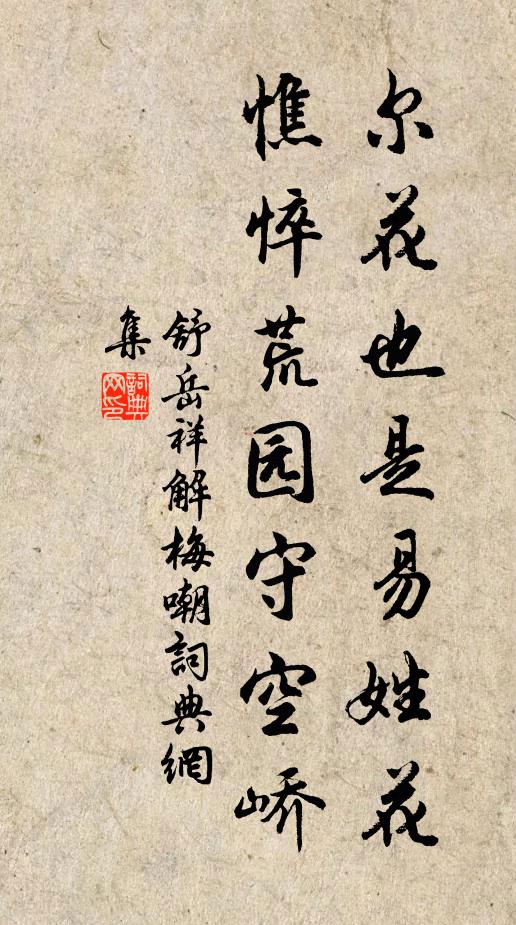 尔花也是易姓花
憔悴荒园守空峤
舒岳祥解梅嘲詞典網
集
詞典网印